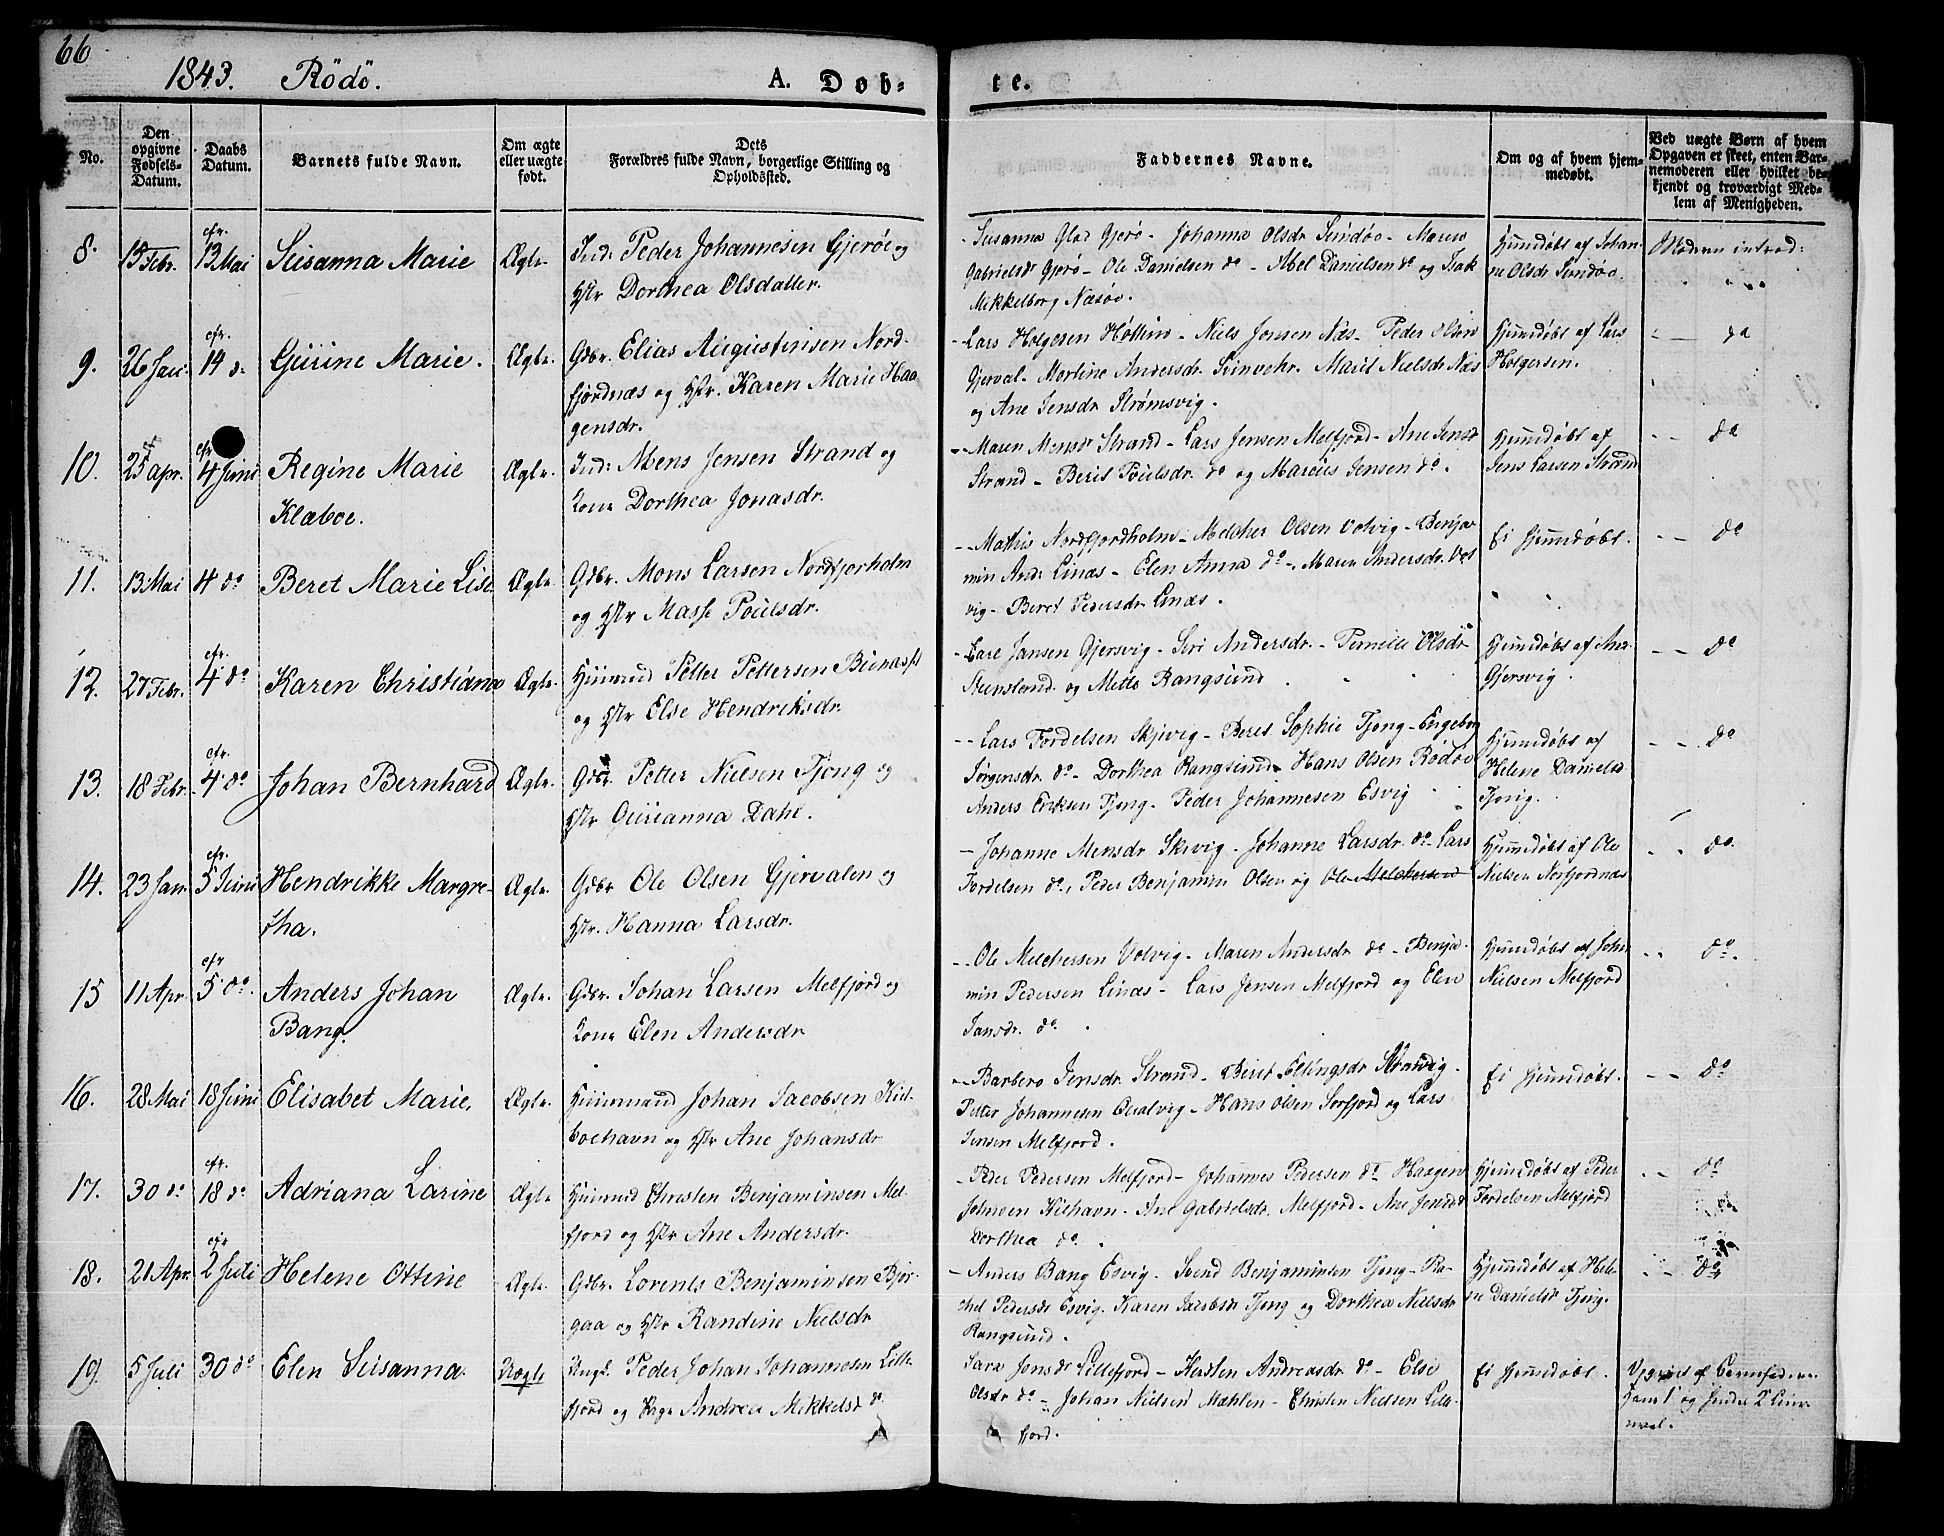 66
1843. Rödö.
A. Døb-
te.
No.
Den opgivne Fødsels-Datum.
Daabs Datum.
Barnets fulde Navn.
Om ægte eller uægte født.
Dets Forældres fulde Navn, borgerlige Stilling og Opholdssted.
Faddernes Navne.
Om og af hvem hjemmedøbt.
Ved uægte Børn af hvem Opgaven er skeet, enten Barnemoderen eller hvilket bekjendt og troværdigt Medlem af Menigheden.
8. 15 Febr. cfr. 13 Mai Susanna Marie Ægte. Ind: Peder Johannesen Gjerøe og
Hstr Dorthea Olsdatter.
Susanna Glad Gjerø - Johanna Olsdr Sundöe - Maren
Gabrielsdr Gjerö - Ole Danielsen do - Abel Danielsen do og Isak
Mikkelborg Næsöe.
Hjemdöbt af Johanne Olsdr Sundöe.
Moderen introd:
9. 26 Jan. cfr. 14 do Gurine Marie. Ægte. Gdbr. Elias Augustinsen Nord-
fjordnæs og Hstr. Karen Marie Haa
gensdr.
Lars Holgesen - Niels Jensen Næs - Peder Olsen
Gjerval - Mortine Andersdr. - Marit Nielsdr Næs
og Ane Jensdr Strömsvig.
Hjemdöbt af Lars
Holgersen.
do
10. 25 Apr. cfr 4 Juni Regine Marie
Klæboe.
Ægte. Ind: Mons Jensen Strand og
Kone Dorthea Jonasdr.
Maren Monsdr Strand - Lars Jensen Melfjord - Ane Jensdr
Strand - Berit Poulsdr. do og Marcus Jensen do.
Hjemdöbt af
Jens Larsen Strand
do
11. 13 Mai 4 do Beret Marie Lise Ægte. Gdbr. Mons Larsen Nordfjorholm
og Hstr Masse Poulsdr.
Mathis Nordfjordholm - Melcher Olsen Volvig - Benja
min And: Linæs - Elen Anna do - Maren Andersdr. Vol
vig - Beret Pedersdr Linæs.
Ei hjemdöbt.
do
12. 27 Febr. cfr. 4 do Karen Christiane Ægte. Huusmand Petter Pettersen
og Hstr Else Hendriksdr.
Jansen Gjersvig - Siri Andersdr. - Pernille Olsdr
og Mette Rangsund
Hjemdöbt af
Gjersvig.
do
13. 18 Febr. cfr. 4 do Johan Bernhard Ægte. Gdbr. Petter Nielsen Tjong og
Hstr Gurianna Dahl.
Lars Tordelsen Skjevig - Beret Sophie Tjong - Engeborg
Jörgensdr do - Dorthea Rangsund - Hans Olsen Rödöe
Anders Eriksen Tjong - Peder Johannesen Esvig
Hjemdöbt af
Helene Danielsd
Tjong.
do
14. 23 Jan. cfr. 5 Juni Hendrikke Margre-
tha.
Ægte. Gdbr Ole Olsen Gjervalen og
Hstr. Hanna Larsdr.
Johanne Monsdr Skevig - Johanne Larsdr. do - Lars
Tordelsen do, Peder Benjamin Olsen og Ole Melchersen
Hjemdöbt af Ole
Nielsen Norfjordnæs
do.
15 11 Apr. cfr 5 do. Anders Johan
Bang.
Ægte. Gdbr. Johan Larsen Melfjord og
Kone Elen Andersdr
Ole Melchersen Volvig - Maren Andersdr do - Benja-
min Pedersen Linæs - Lars Jensen Melfjord og Elen
Jansdr. do.
Hjemdöbt af John
Nielsen Melfjord
do.
16. 28 Mai 18 Juni Elisabet Marie. Ægte. Huusmand Johan Jacobsen Kiel-
boehavn og Hstr Ane Johansdr
Barbero Jensdr. Strand - Beret Ellingsdr
Petter Johannesen - Hans Olsen Sorfjord og Lars
Jensen Melfjord.
Ei hjemdöbt.
do
17. 30 do cfr. 18 do Adriana Larine Ægte. Huusmd Christen Benjaminsen Mel-
fjord og Hstr Ane Andersdr.
Peder Pedersen Melfjord - Johannes Pedersen do - Haagen
Johnsen Kiehavn - Ane Gabrielsdr. Melfjord - Ane Jensdr
Dorthea do.
Hjemdöbt af Peder
Tordelsen Melfjord
do
18. 21 Apr. cfr 2 Juli Helene Ottine Ægte. Gdbr. Lorents Benjaminsen Björ-
gaa og Hstr Randine Nielsdr
Anders Bang Esvig - Svend Benjaminsen Tjong - Ra-
chel Pedersdr Esvig. Karen Jacobsdr Tjong og Dorthea Nielsdr
Rangsund.
Hjemdöbt af Hele-
ne Danielsdr Tjong.
do
19. 5 Juli 30 do Elen Susanna. Uægte Ungk. Peder Johan Johannesen Lille
fjord og Pige Andrea Mikkelsd do.
Sara Jonsdr Lillefjord - Kersten Andreasdr. do - Else
Olsdr do - Johan Nielsen Mæhlen - Christen Nielsen Lille-
fjord.
Ei hjemdöbt.